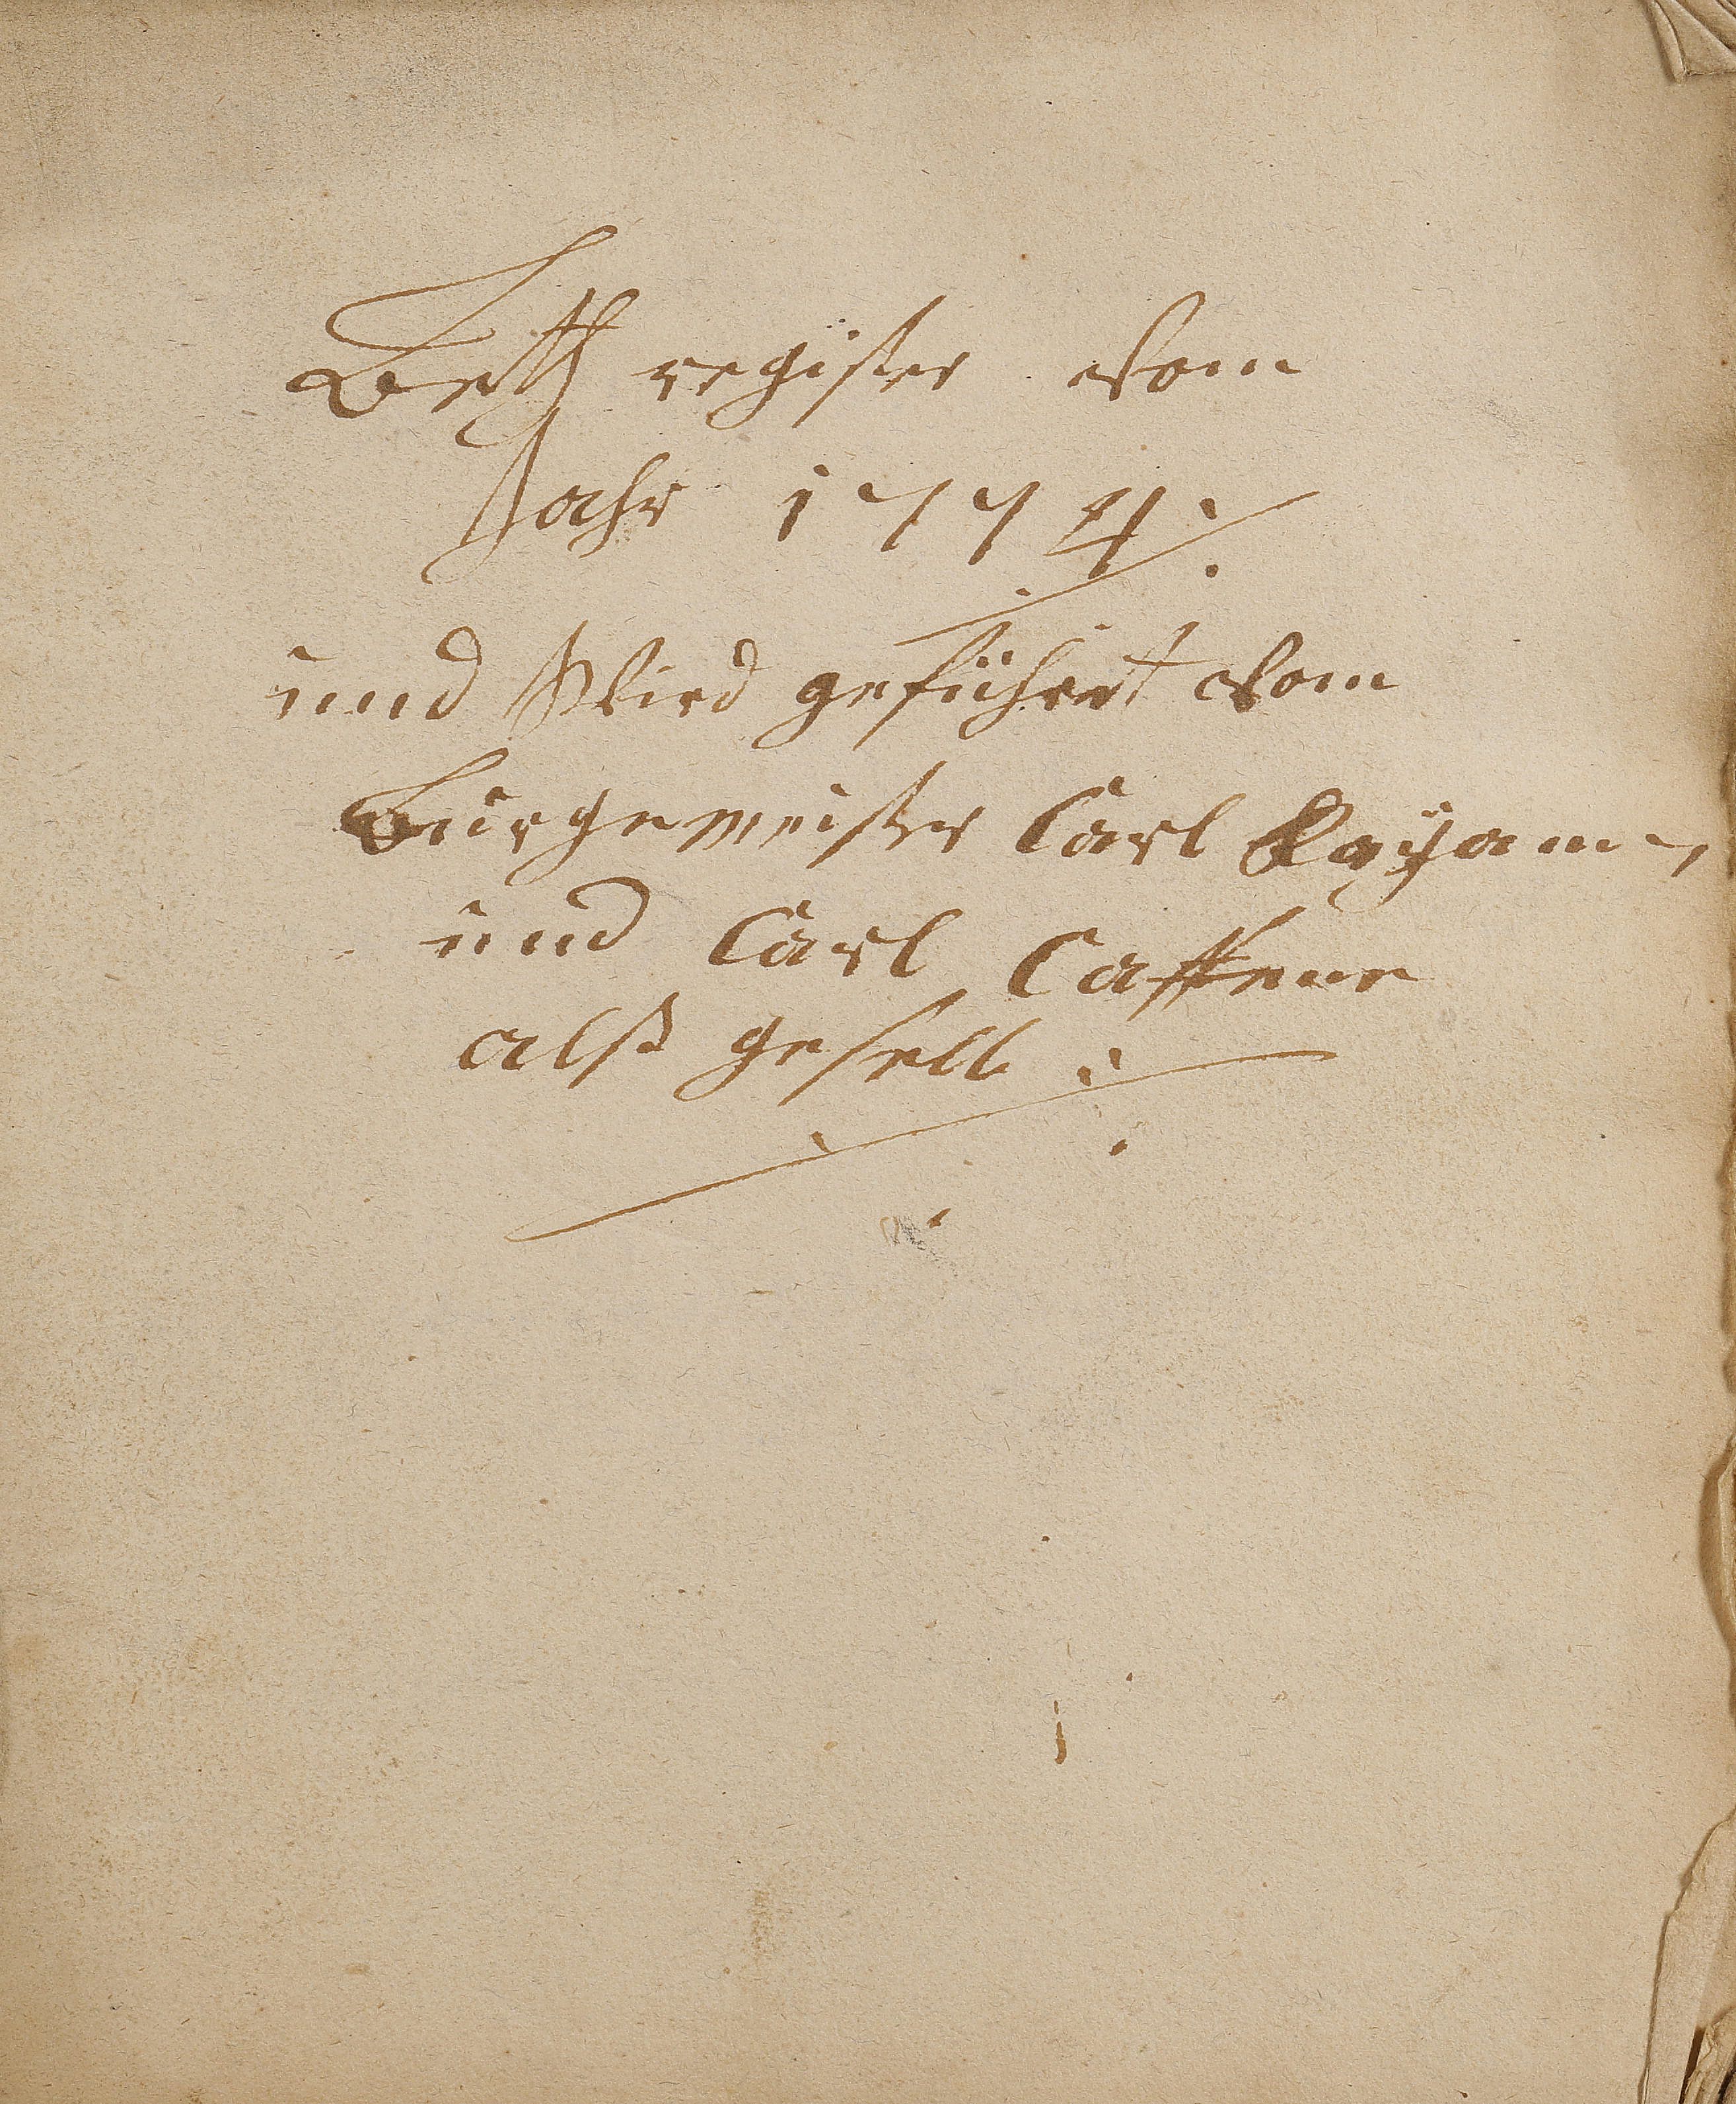 Beth register Vom
Jahr 1774
und Wird geführt Vom
Burgemeister Carl
und Carl
alß gesell